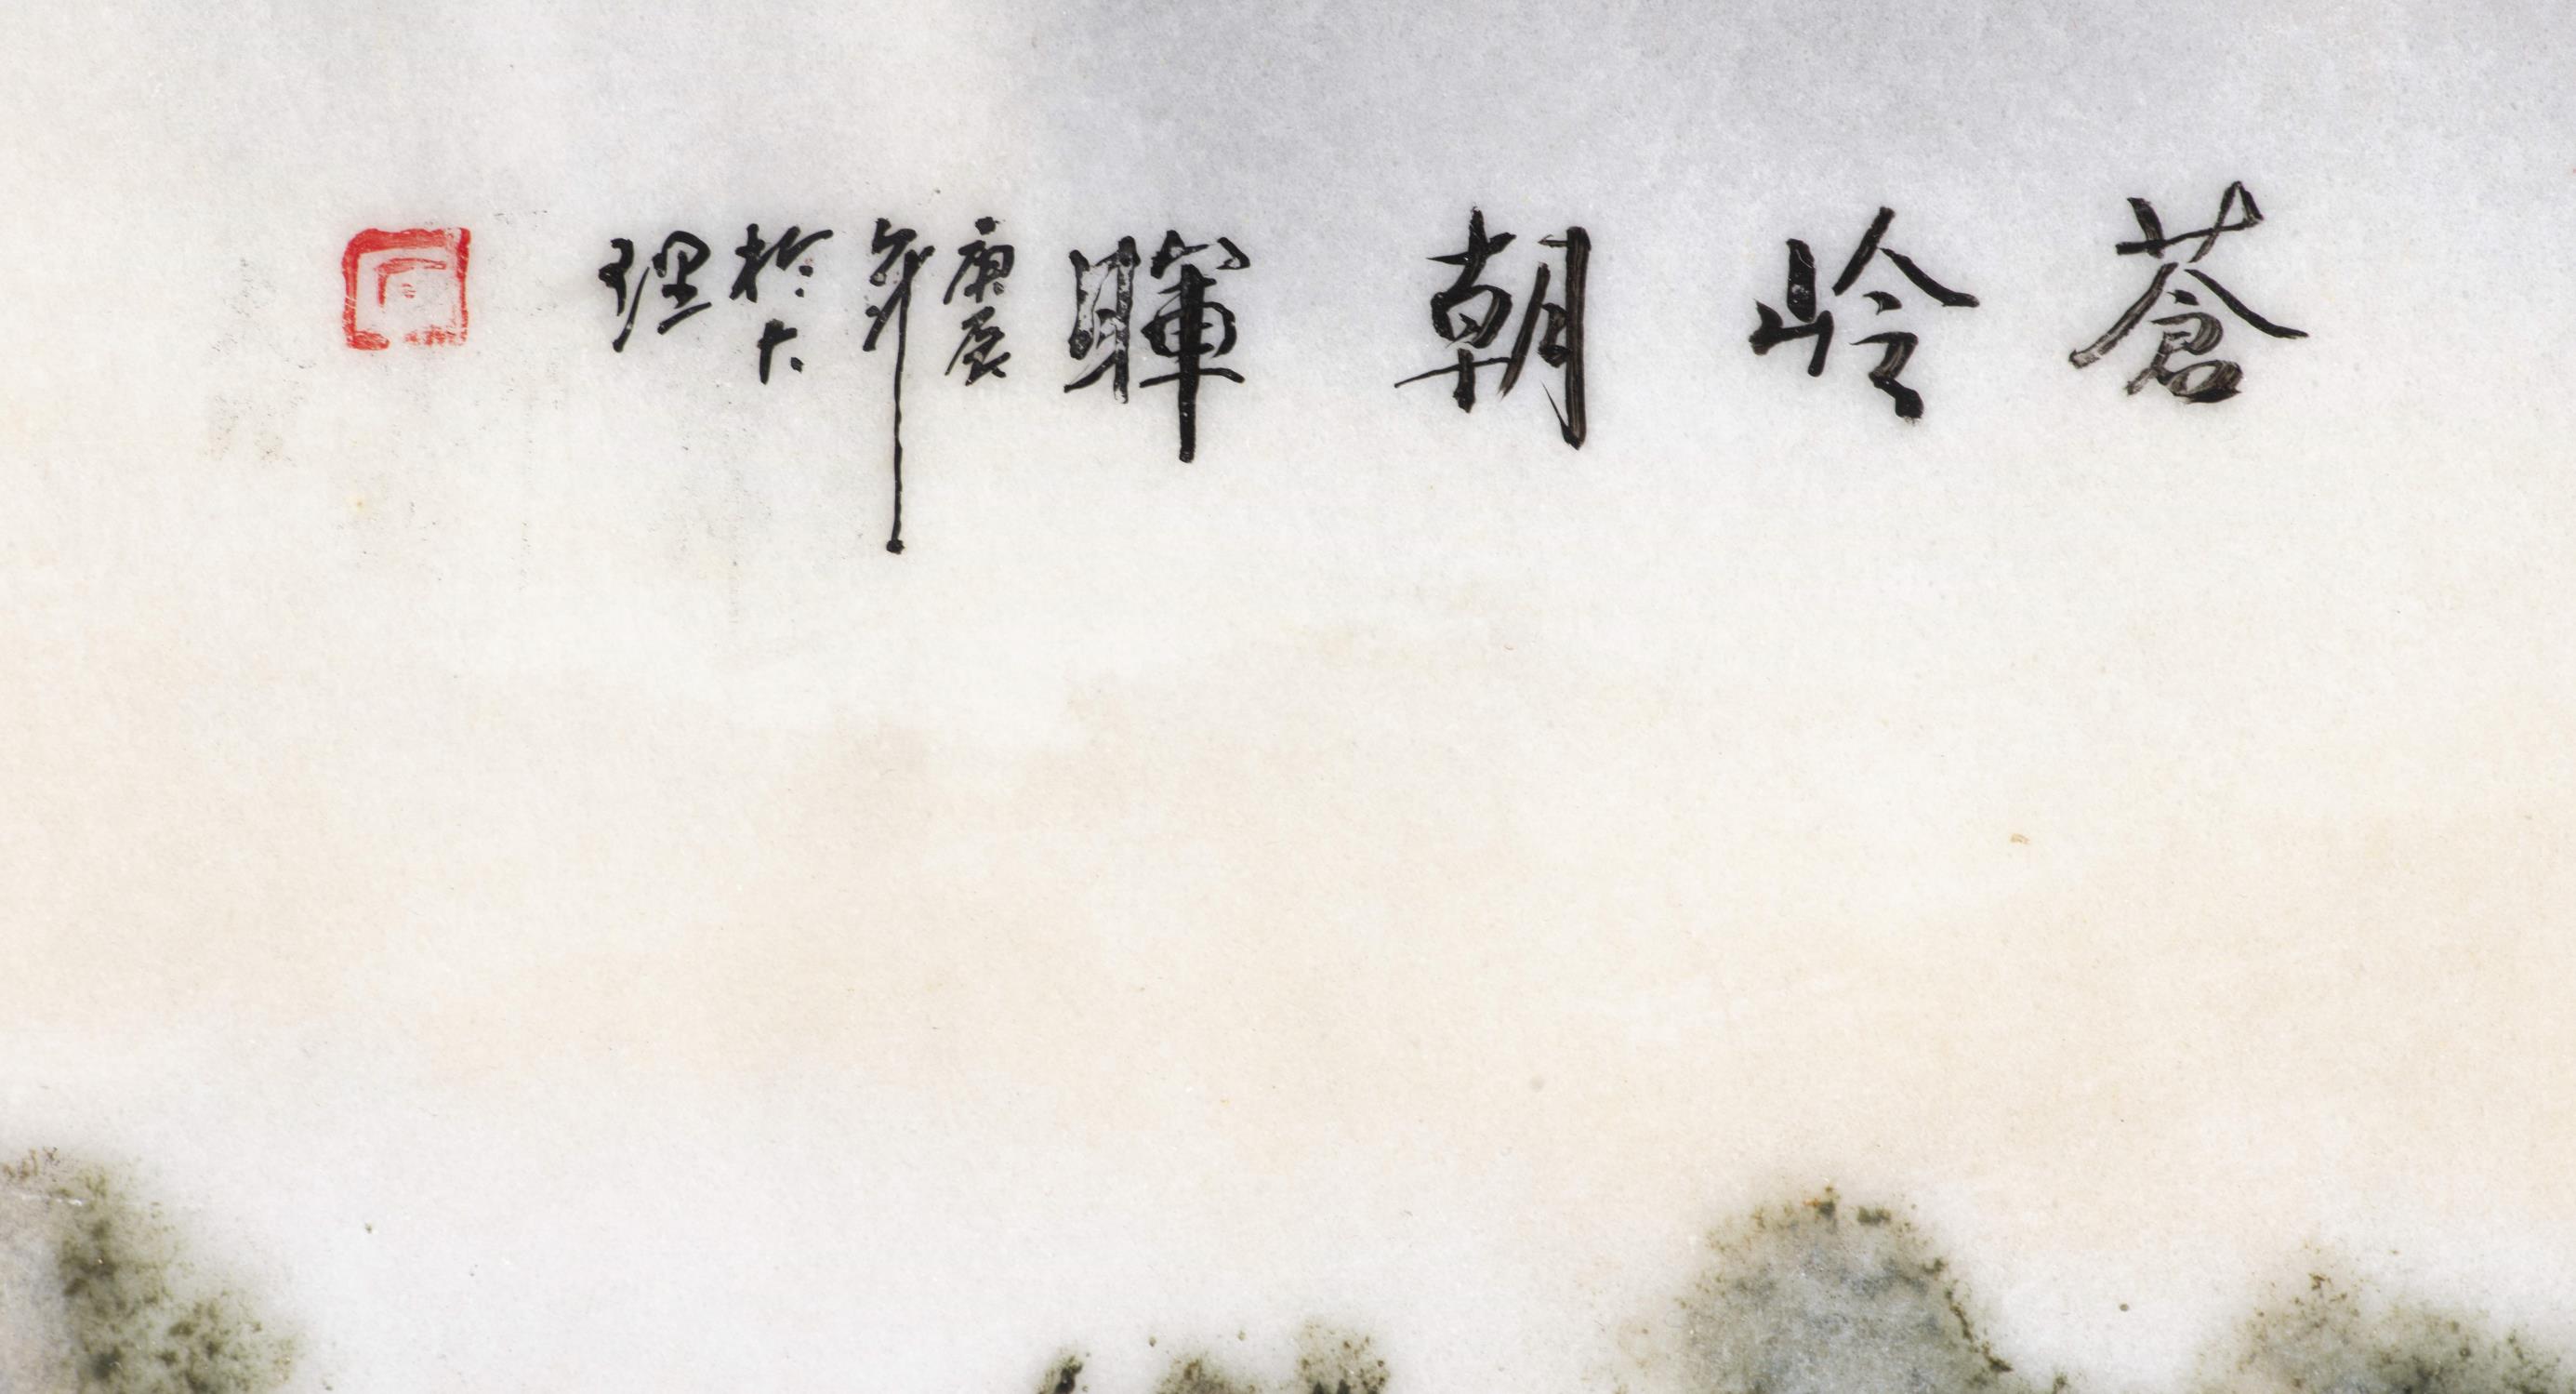 蒼岭朝暉
庚辰
年
於大
理